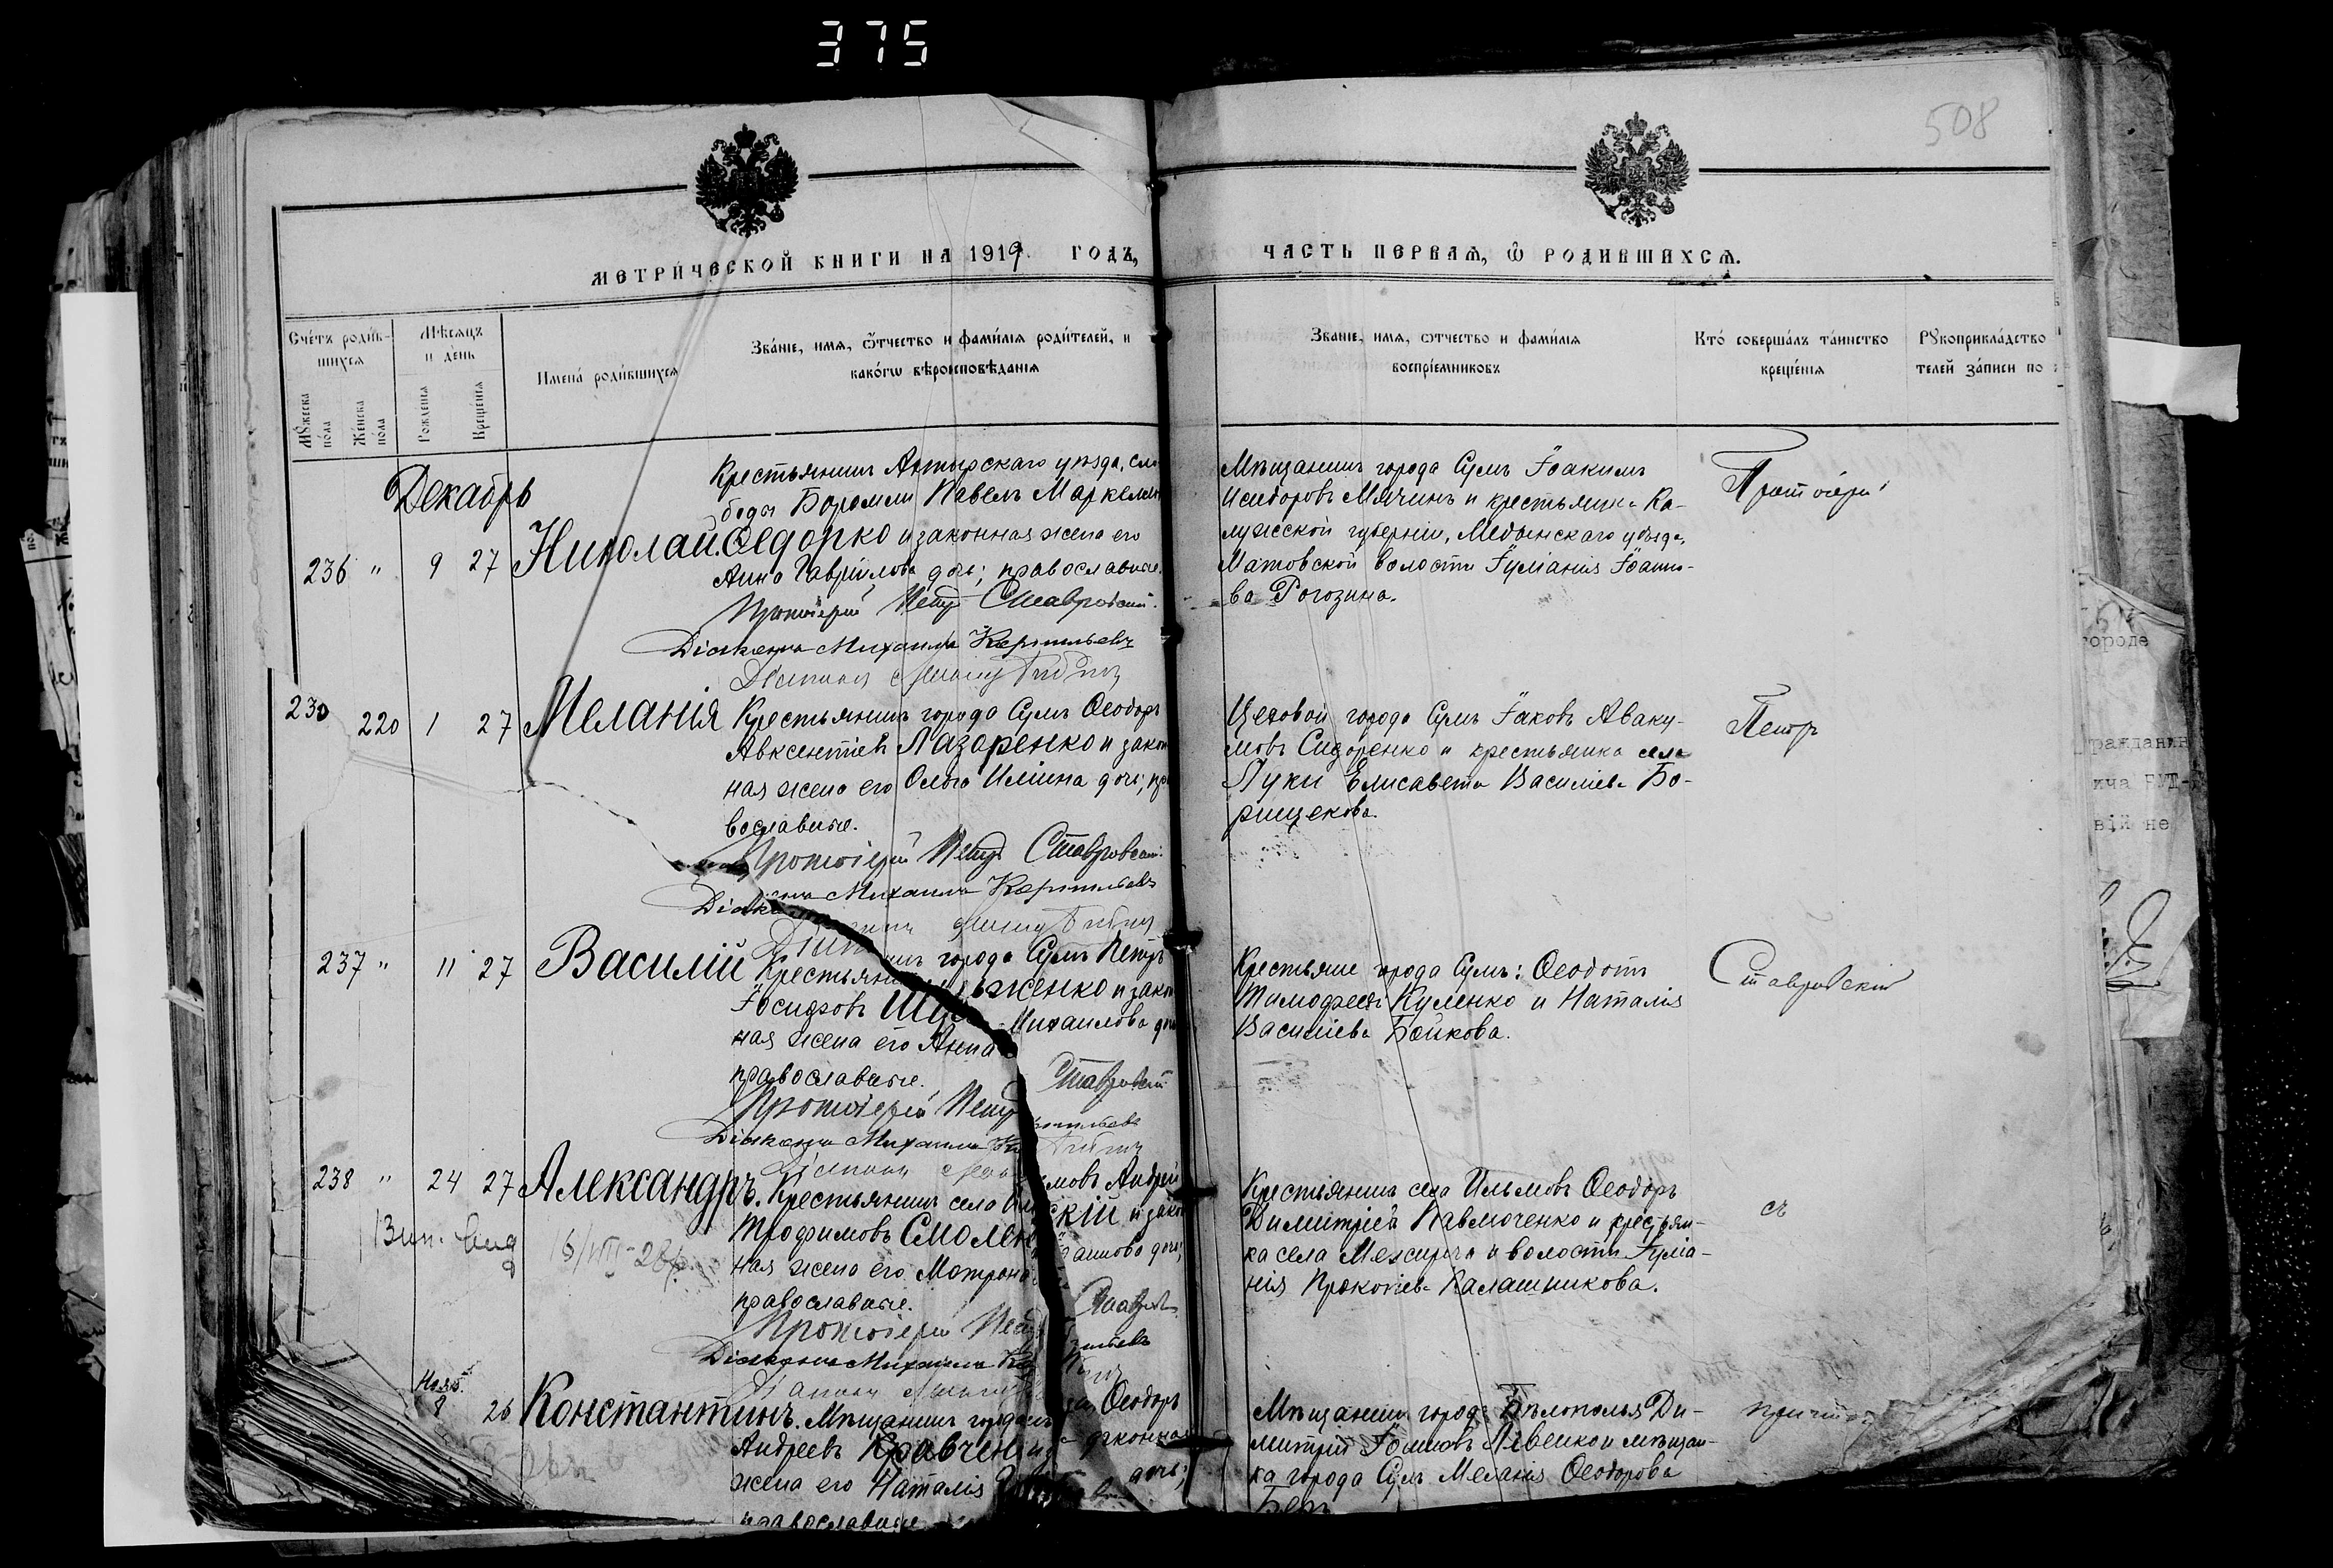 375
508
МЕТРИЧЕСКОЙ КНИГИ НА 1919 ГОДЪ,
ЧАСТЬ ПЕРВАЯ, Ѿ РОДИВШИХСЯ.
Счетъ родив-
шихся
Мужеска
пола
Женска
пола
Мѣсяцъ
и день
Рожденія
Крещенія
Имена родившихся
Званіе, имя, ѿчество и фамилія родителей, и
какогѡ вѣроисповѣданія
Званіе, имя, ѿчество и фамилія
воспріемниковъ
Кто совершалъ таинство
крещенія
Рукоприкладство
телей записи по
Декабрь
236 " 9 27 Николай.
Крестьянинъ Ахтырскаго уѣзда, сло
боды Боромли Павелъ Маркелл
Ѳедорко и законная жена его
Анна Гавріилова дочь; православные.
Протоіерей Петръ Ставровскій.
Діаконъ Михаилъ
Мѣщанинъ города Сумъ Іоакимъ
Исидоровъ Мячинъ и крестьянка Ка-
лужской губерніи, Медынскаго уѣзда,
Матовской волости Іуліанія Іоанно-
ва Рогозина.
Протоіерей
230 220 1 27 Меланія
Крестьянинъ города Сумъ Ѳеодоръ
Авксентіевъ Лазаренко и закон
ная жена его Ольга Иліина дочь; пра
вославные.
Протоіерей Петръ Ставровскій.
Михаилъ
Цеховой города Сумъ Іаковъ Аваку-
мовъ Сидоренко и крестьянка села
Луки Елисавета Василіева Бо-
рищекова.
Петръ
237 " 11 27 Василій
города Сумъ Петръ
Іосифовъ женко и закон
ная жена его Анна Михаилова дочь
православные.
Протоіерей Петръ Ставровскій
Діаконъ Михаилъ
Крестьяне города Сумъ: Ѳеодотъ
Тимофеевъ Куленко и Наталія
Василіева Бойкова.
Ставровскій
238 " 24 27 Александръ.
Крестьянинъ села мовъ Андрей
Трофимовъ Смоле скій и закон
ная жена его Матрона анова дочь;
православные.
Протоіерей Петръ
Діаконъ Михаилъ
Крестьянинъ села Ильмовъ Ѳеодоръ
Димитріевъ Павлюченко и крестьян-
ка села Межирича и волости Іуліа-
нія Прокопіева Калашникова.
съ
Нояб.
8 26 Константинъ.
Мѣщанинъ города Ѳеодоръ
Андреевъ Кравчен законная
жена его Наталія дочь;
православные
Мѣщанинъ города Бѣлополья Ди-
митрій Левенко и мѣщан-
ка города Сумъ Меланія Ѳеодорова
причтомъ
городе
ражданин
ича
вій не